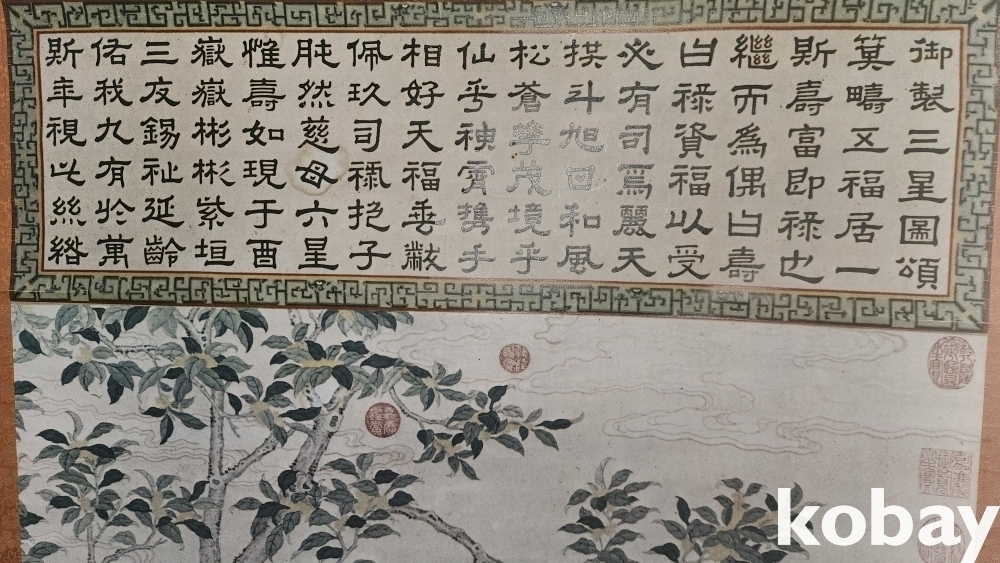 御製三星圖頌
箕疇五福居一
斯壽富即祿也
繼而為偶曰壽
曰祿資福以受
必有司焉麗天
拱斗旭日和風
松蒼華茂境乎
仙乎神霄攜手
相好天福垂黻
佩玖司祿抱子
肫然慈母六星
惟壽如現于酉
嶽嶽彬彬紫垣
三友錫祉延齡
佑我九有於萬
斯年視此絲綹
kobay